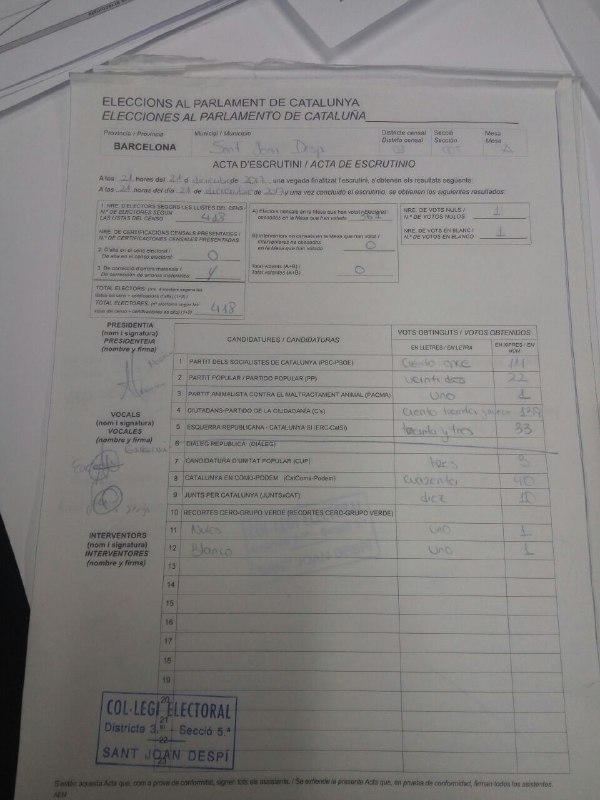 ELECCIONS AL PARLAMENT DE CATALUNYA
ELECCIONES AL PARLAMENTO DE CATALUÑA
Provincia / Provincia Municipi / Municipio Districte censal Secció Mesa
Distrito censal Sección Mesa
BARCELONA Sant Joan Despí A
ACTA D'ESCRUTINI / ACTA DE ESCRUTINIO
A les 21 hores del 21 de 2017, una vegada finalitzat l'escrutini, s'obtenen els resultats següents:
A las 21 horas del día 21 de diciembre de 2017 y una vez concluido el escrutinio, se obtienen los siguientes resultados:
1. NRE. D'ELECTORS SEGONS LES LLISTES DEL CENS
N.º DE ELECTORES SEGÚN
LAS LISTAS DEL CENSO 418
NRE. DE CERTIFICACIONS CENSALS PRESENTADES /
N.º DE CERTIFICACIONES CENSALES PRESENTADAS
2. D'alta en el cens electoral /
De alta en el censo electoral: 0
3. De correcció d'errors materials /
De corrección de errores materiales:
TOTAL ELECTORS:
TOTAL ELECTORES: 418
A) Electors censats en la Mesa que han votat / Electores
censados en la Mesa que han votado
B) Interventors no censats en la Mesa que han votat /
Interventores no censados
en la Mesa que han votado 0
Total votants (A+B) /
Total votantes (A+B) 0
NRE. DE VOTS NULS /
N.º DE VOTOS NULOS 1
NRE. DE VOTS EN BLANC /
N.º DE VOTOS EN BLANCO 1
PRESIDENTIA
(nom i signatura)
PRESIDENTEIA
(nombre y firma)
CANDIDATURES / CANDIDATURAS VOTS OBTINGUTS / VOTOS OBTENIDOS
EN LLETRES / EN LETRA EN XIFRES / EN NÚM
1 PARTIT DELS SOCIALISTES DE CATALUNYA (PSC-PSOE) Ciento once 111
2 PARTIT POPULAR / PARTIDO POPULAR (PP) veintidos 22
3 PARTIT ANIMALISTA CONTRA EL MALTRACTAMENT ANIMAL (PACMA) uno 1
4 CIUTADANS-PARTIDO DE LA CIUDADANÍA (C's) Ciento
5 ESQUERRA REPUBLICANA - CATALUNYA SÍ (ERC-CatSí) treinta y tres 33
6 DIÀLEG REPUBLICÀ (DIÀLEG)
7 CANDIDATURA D'UNITAT POPULAR (CUP) tres 3
8 CATALUNYA EN COMÚ-PODEM (CatComú-Podem) cuarenta 40
9 JUNTS PER CATALUNYA (JUNTSxCAT) diez 10
10 RECORTES CERO-GRUPO VERDE (RECORTES CERO-GRUPO VERDE)
11 Nulos uno 1
12 Blanco uno 1
13
14
15
16
17
18
19
20
21
22
23
VOCALS
(nom i signatura)
VOCALES
(nombre y firma)
INTERVENTORS
(nom i signatura)
INTERVENTORES
(nombre y firma)
COL·LEGI ELECTORAL
Districte 3.er - Secció 5.ª
SANT JOAN DESPÍ
S'estén aquesta Acta que, com a prova de conformitat, signen tots els assistents. / Se extiende la presente Acta que, en prueba de conformidad, firman todos los asistentes.